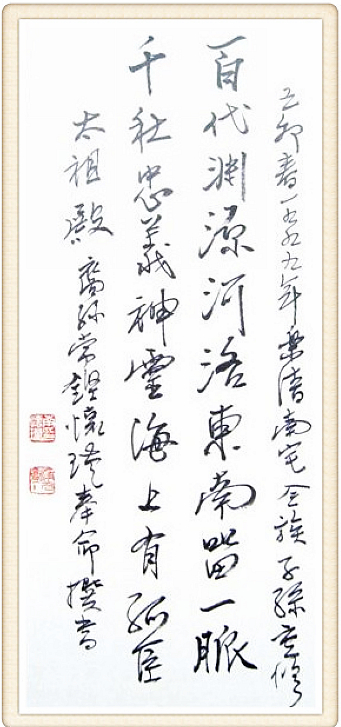 己卯春一九九九年樂清南宅全族子孫重修
百代淵源河洛東南留一脈
千秋忠義神靈海上有孤臣
太祖殿裔孫常懷奉命撰書